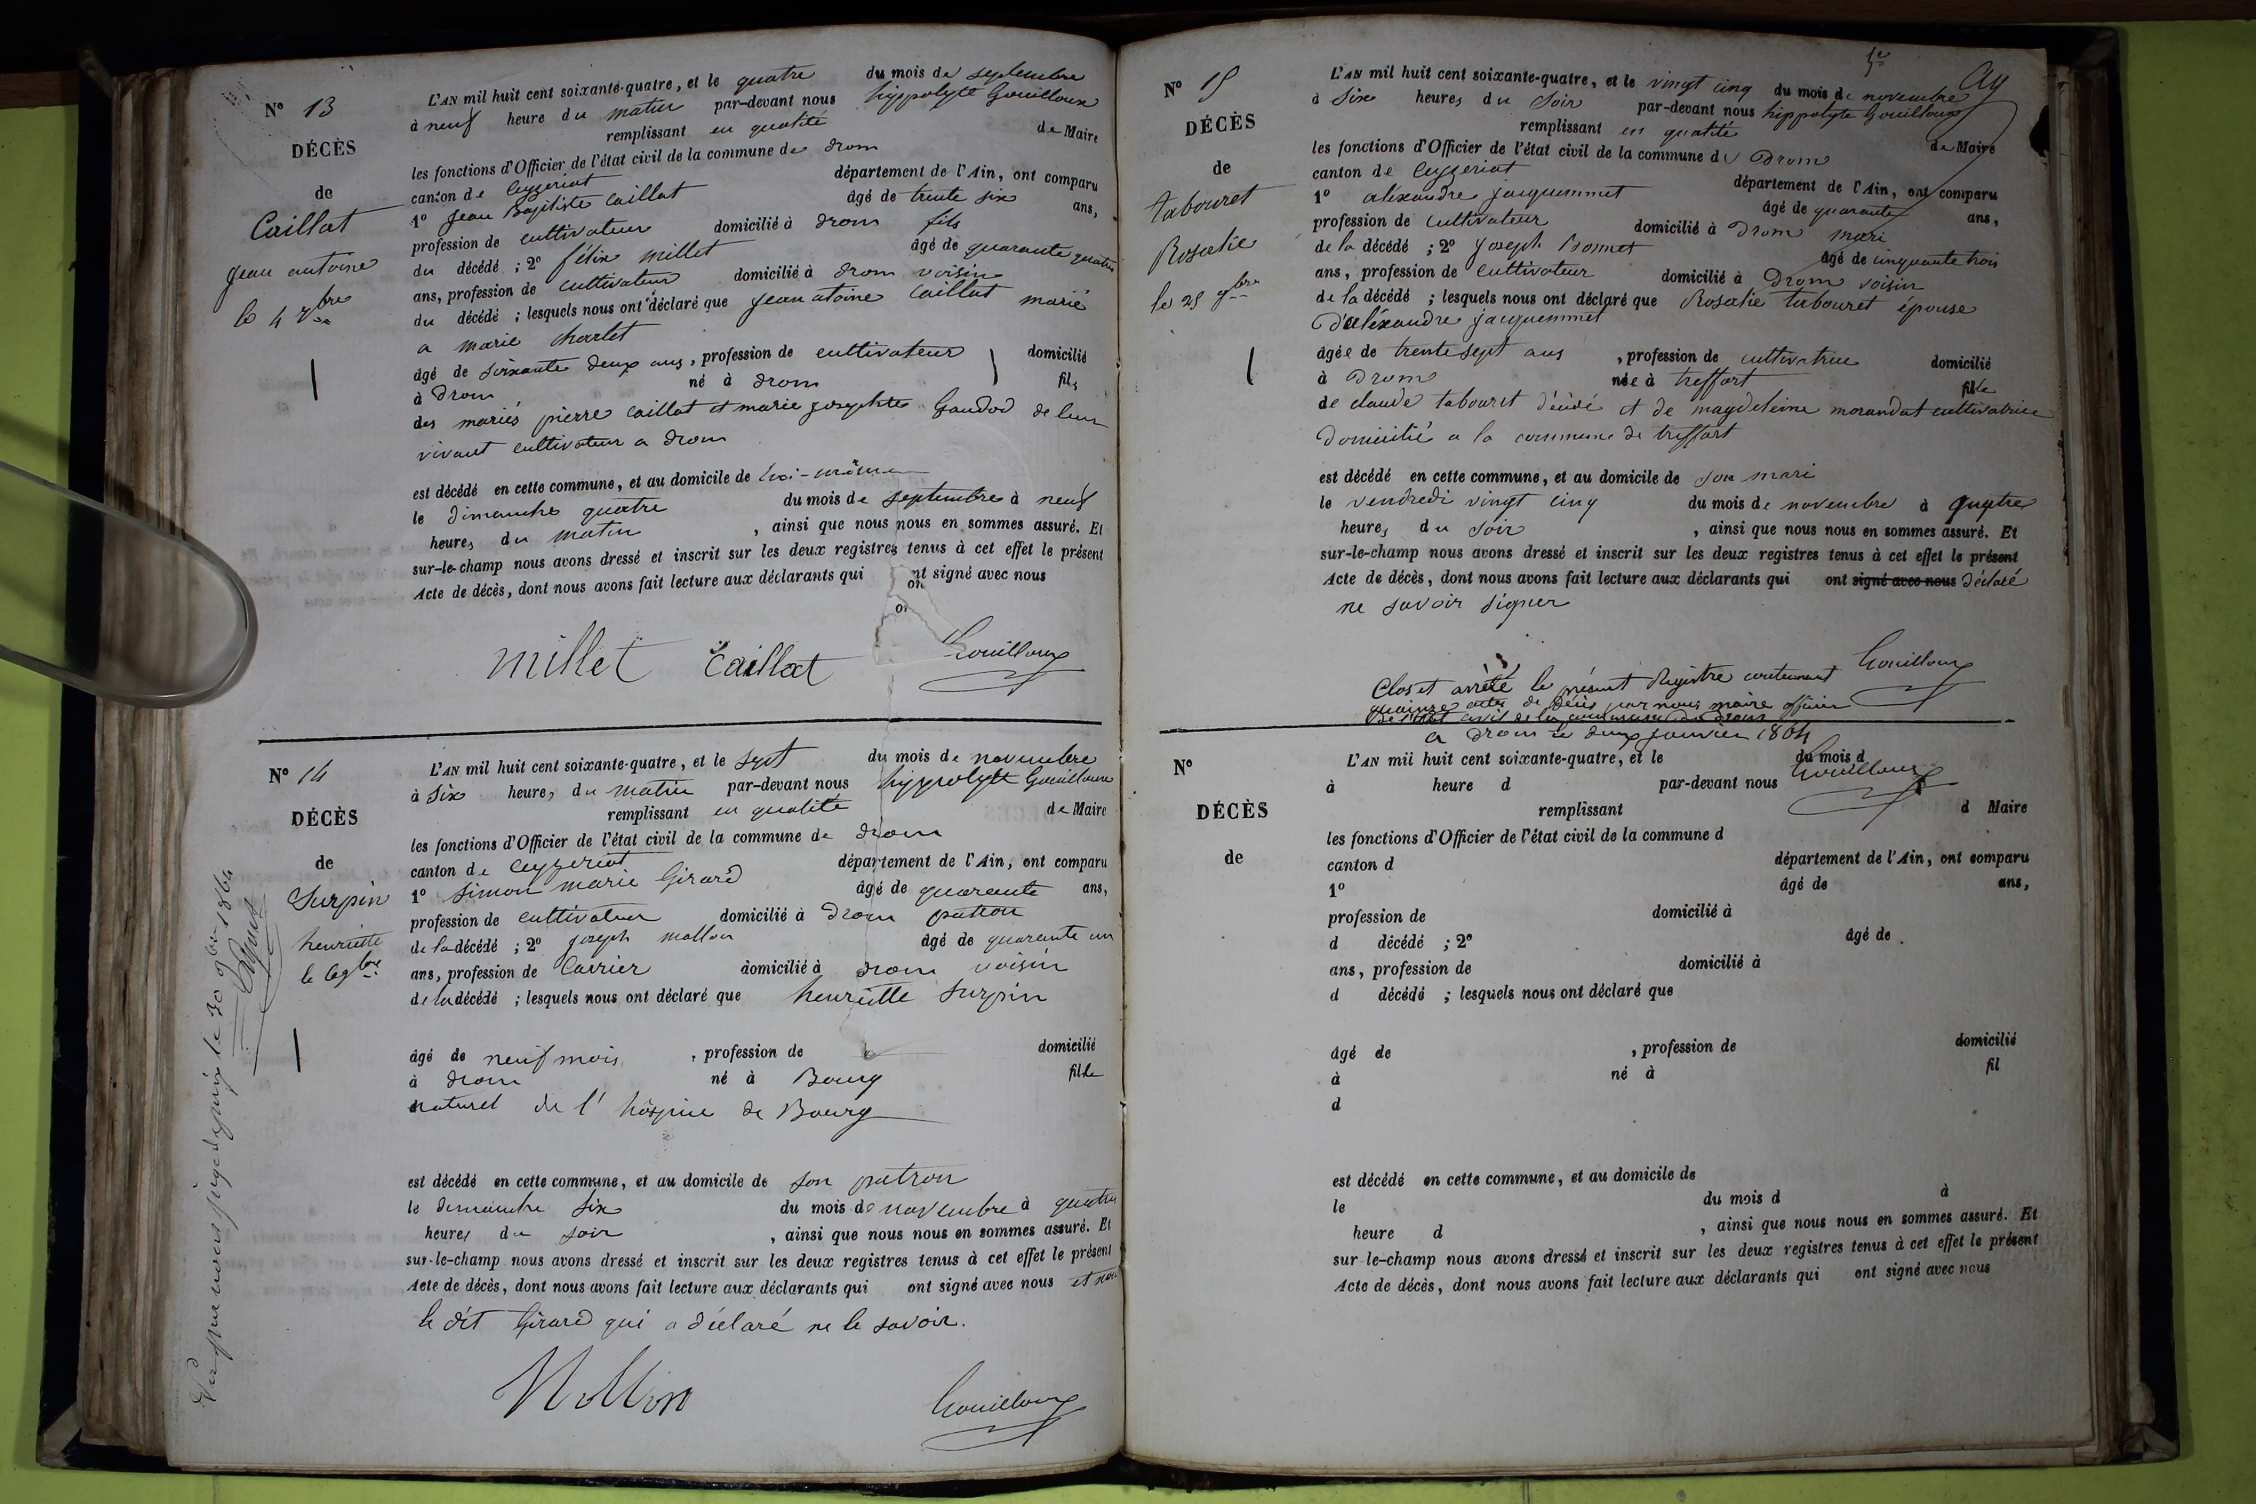 N° 13
DÉCÈS
de
Caillat
jean antoine
le 4 7bre
L'AN mil huit cent soixante-quatre, et le quatre du mois de septembre
à neuf heure du matin par-devant nous hippolyte Gouilloux
remplissant en qualité de Maire
les fonctions d'Officier de l'état civil de la commune de drom
canton de Ceyzeriat département de l'Ain, ont comparu
1° jean Baptiste Caillat âgé de trente six ans,
profession de cultivateur domicilié à drom fils
du décédé ; 2° félix millet âgé de quarante quatre
ans, profession de cultivateur domicilié à drom voisin
du décédé ; lesquels nous ont déclaré que jean atoine Caillat marié
a marie charlet
âgé de soixante deux ans, profession de cultivateur domicilié
à Drom né à drom fils
des mariés pierre Caillat et marie josephte Gaudod de leur
vivant cultivateur a drom
est décédé en cette commune, et au domicile de lui-même
le dimanche quatre du mois de septembre à neuf
heures du matin , ainsi que nous nous en sommes assuré. Et
sur-le-champ nous avons dressé et inscrit sur les deux registres tenus à cet effet le présent
Acte de décès, dont nous avons fait lecture aux déclarants qui ont signé avec nous
millet Caillat Gouilloux
N° 14
DÉCÈS
de
Surpin
henriette
le 6 9bre
Vu par nous juge de paix le 30 9bre 1864
L'AN mil huit cent soixante-quatre, et le sept du mois de novembre
à six heures du matin par-devant nous hippolyte Gouilloux
remplissant en qualité de Maire
les fonctions d'Officier de l'état civil de la commune de drom
canton de Ceyzeriat département de l'Ain, ont comparu
1° Simon marie Girard âgé de quarante ans,
profession de cultivateur domicilié à Drom patron
de la décédé ; 2° joseph mollon âgé de quarante un
ans, profession de Carrier domicilié à drom voisin
de la décédé ; lesquels nous ont déclaré que henriette Surpin
âgé de neuf mois , profession de domicilié
à drom né à Bourg fille
naturel de l' hôspice de Bourg
est décédé en cette commune, et au domicile de son patron
le dimanche six du mois de novembre à quatre
heures du soir , ainsi que nous nous en sommes assuré. Et
sur-le-champ nous avons dressé et inscrit sur les deux registres tenus à cet effet le présent
Acte de décès, dont nous avons fait lecture aux déclarants qui ont signé avec nous et non
le dit Girard qui a déclaré ne le savoir.
Mollon Gouilloux
N° 15
DÉCÈS
de
tabouret
Rosalie
le 25 9bre
L'AN mil huit cent soixante-quatre, et le vingt cinq du mois de novembre
à Six heures du Soir par-devant nous hippolyte Gouilloux
remplissant en qualité de Maire
les fonctions d'Officier de l'état civil de la commune de Drom
canton de Ceyzeriat département de l'Ain, ont comparu
1° alexandre jacquemmet âgé de quarante ans,
profession de Cultivateur domicilié à Drom mari
de la décédé ; 2° joseph bonnet âgé de cinquante trois
ans, profession de cultivateur domicilié à Drom voisin
de la décédé ; lesquels nous ont déclaré que Rosalie tabouret épouse
D'alexandre jacquemmet
âgée de trente sept ans , profession de cultivatrice domicilié
à Drom née à treffort fille
de claude tabouret décédé et de magdeleine morandat cultivatrice
Domicilié a la commune de treffort
est décédé en cette commune, et au domicile de son mari
le vendredi vingt cinq du mois de novembre à quatre
heures du soir , ainsi que nous nous en sommes assuré. Et
sur-le-champ nous avons dressé et inscrit sur les deux registres tenus à cet effet le présent
Acte de décès, dont nous avons fait lecture aux déclarants qui ont signé avec nous déclaré
ne savoir signer
Gouilloux
Clos et arrêté le présent Régistre contenant
quainze actes de Décès par nous maire officier
de l'état civil de la commune de drom
a drom le deux janvier 1864
Gouilloux
N°
DÉCÈS
de
L'AN mil huit cent soixante-quatre, et le du mois d
à heure d par-devant nous
remplissant d Maire
les fonctions d'Officier de l'état civil de la commune d
canton d département de l'Ain, ont comparu
1° âgé de ans,
profession de domicilié à
d décédé ; 2° âgé de
ans, profession de domicilié à
d décédé ; lesquels nous ont déclaré que
âgé de , profession de domicilié
à né à fil
d
est décédé en cette commune, et au domicile de
le du mois d à
heure d , ainsi que nous nous en sommes assuré. Et
sur-le-champ nous avons dressé et inscrit sur les deux registres tenus à cet effet le présent
Acte de décès, dont nous avons fait lecture aux déclarants qui ont signé avec nous